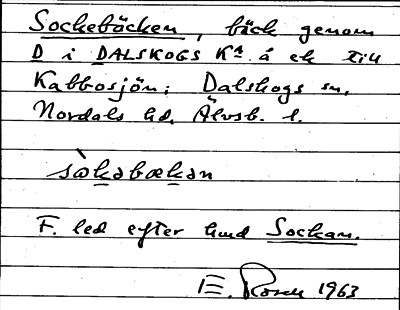 Sockebäcken, bäck genom
D i DALSKOGS Ka å ek till
Kabbosjön; Dalskogs sn,
Nordals hd, Älvsb. l.
sɷ̀kəbækən
F. led efter hmd Sockan.
E. Rosen 1963